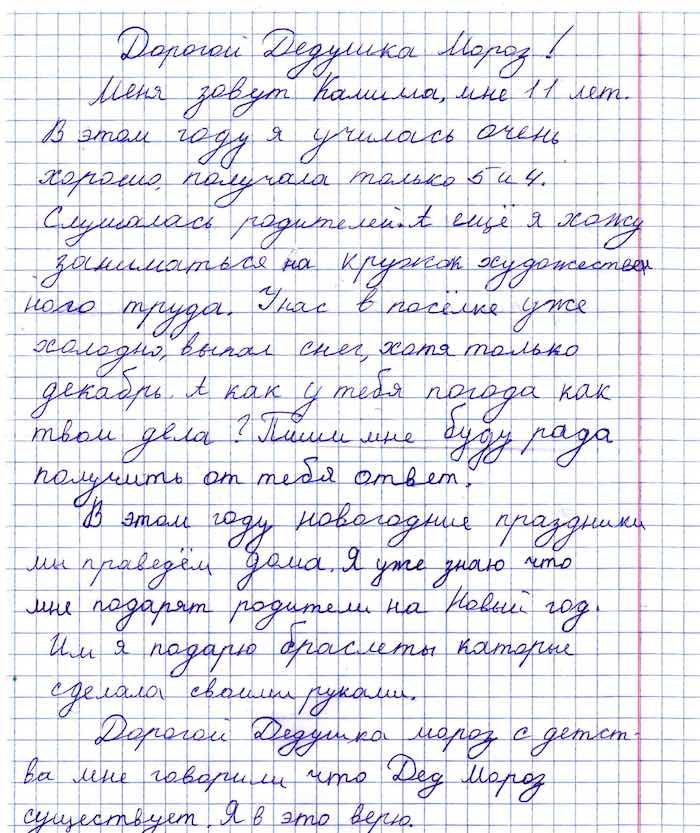 Дорогой Дедушка Мороз!
Меня зовут Камима, мне 11 лет.
В этом году я училась очень
хорошо, получала только 5 и 4.
Слушалась родителей. А ещё я хожу
заниматься на кружок художествен
ного труда. У нас в посёлке уже
холодно, выпал снег, хотя только
декабрь. А как у тебя погода как
твои дела? Пиши мне буду рада
получить от тебя ответ.
В этом году новогодние праздники
мы праведём дома. Я уже знаю что
мне подарят родители на Новый год.
Им я подарю браслеты каторые
сделала своими руками.
Дорогой Дедушка мороз с детст-
ва мне говорили что Дед Мороз
существует. Я в это верю.